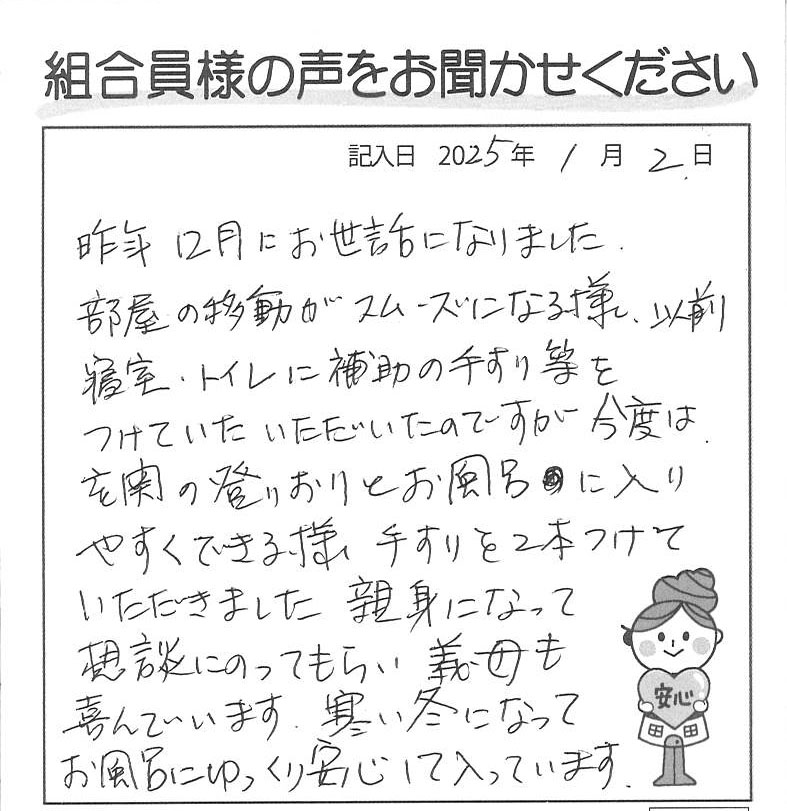 組合員様の声をお聞かせください
記入日 2025年 1月 2日
昨年12月にお世話になりました.
部屋の移動がスムーズになる様、以前
寝室・トイレに補助の手すり等を
つけていたいただいたのですが 今度は
玄関の登りおりとお風呂に入り
やすくできる様 手すりを2本つけて
いただきました 親身になって
想談にのってもらい 義母も
喜んでいます. 寒い冬になって
お風呂にゆっくり安心して入っています.
安心